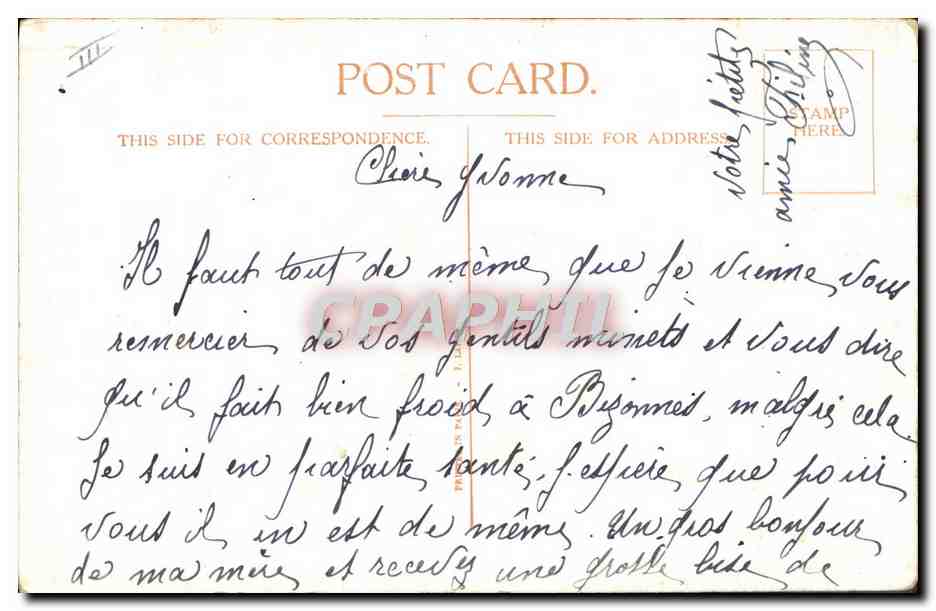 III
POST CARD.
THIS SIDE FOR CORRESPONDENCE.
THIS SIDE FOR ADDRESS
STAMP
HERE
Chère Yvonne
Il faut tout de même que je vienne vous
remercier de vos gentils minets et vous dire
qu'il fait bien froid à Bizonnes, malgré cela
je suis en parfaite santé, j'espère que pour
vous il en est de même. Un gros bonjour
de ma mère et recevez une grosse bise de
votre petite
amie
CPARHTI
PRINTED IN